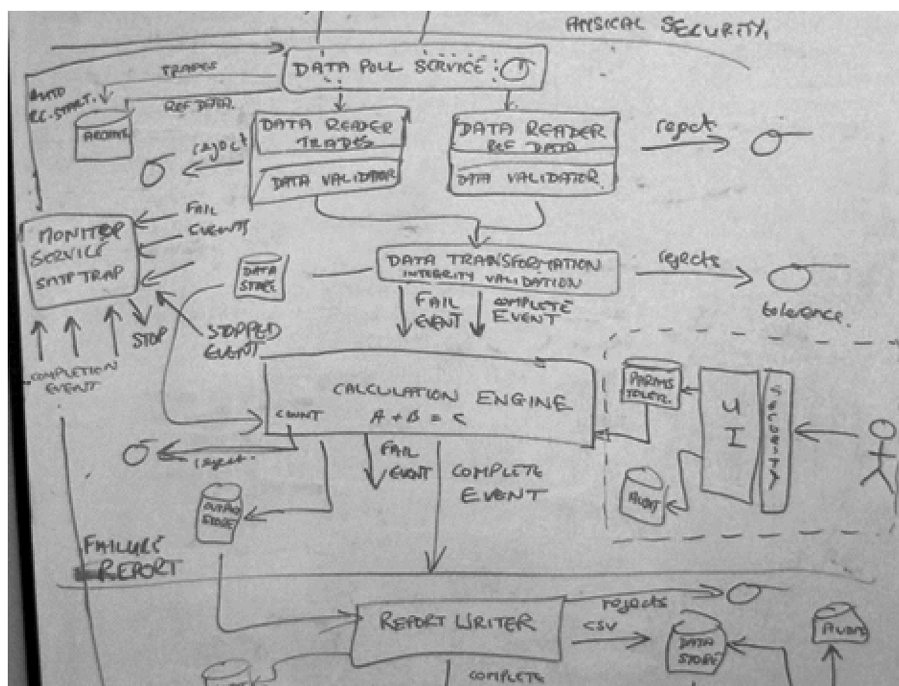 PHYSICAL SECURITY
TRADES
DATA POLL SERVICE:
AUTO
RE.START.
REF DATA.
ARCHIVE
DATA READER
TRADES
DATA VALIDATOR
DATA READER
REF DATA
DATA VALIDATOR.
reject
reject.
MONITOR
SERVICE
FAIL
EVENTS
DATA
STORE
DATA TRANSFORMATION
INTEGRITY VALIDATION
rejects
tolerence.
STOP
STOPPED
EVENT
FAIL
EVENT
COMPLETE
EVENT
COMPLETION
EVENT
CALCULATION ENGINE
A + B = C
COUNT
PARAMS
TOLER.
UI
SECURITY
AUDIT
reject.
FAIL
EVENT
COMPLETE
EVENT
OUTPUT
STORE
FAILURE
REPORT
REPORT WRITER
rejects
CSV
DATA
STORE
AUDIT
COMPLETE